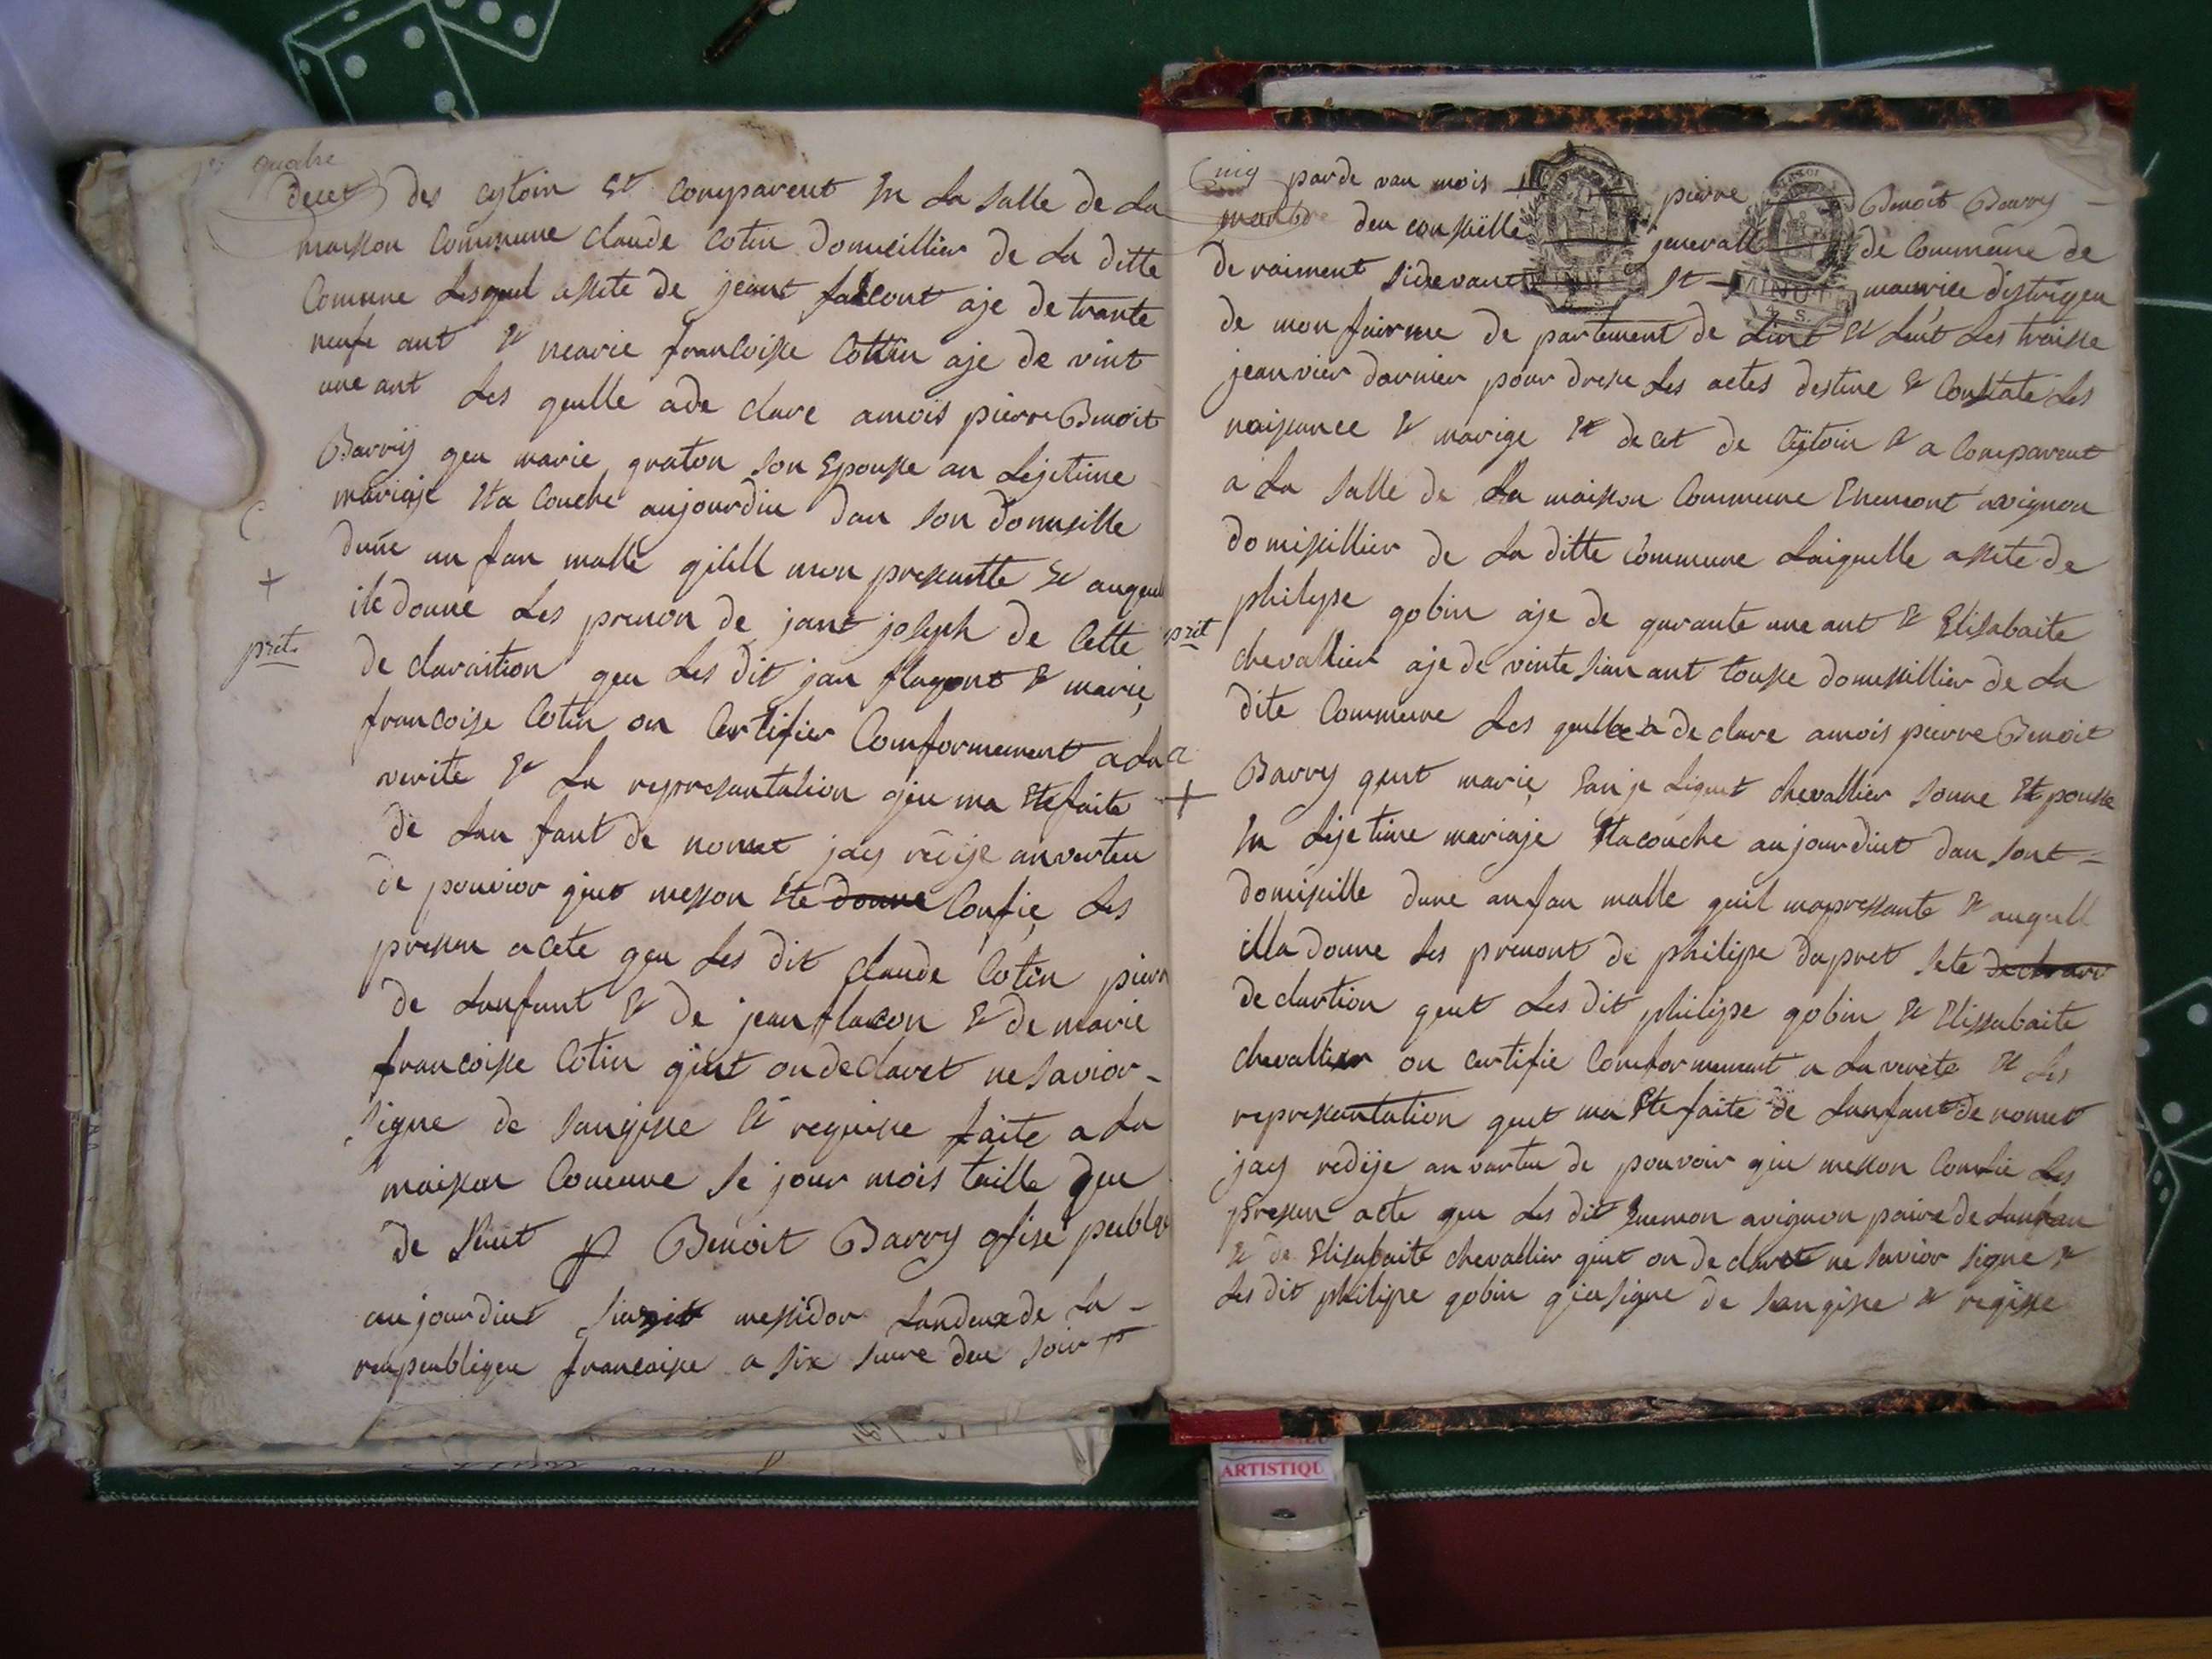 quatre
decet des cytoin et comparent en La salle de La
maison Commune claude Cotin domicillier de La ditte
Comune Lesquel assite de jeant falcont aje de trante
neufe ant et mearie francoise Cottin aje de vint
une ant Les quelle ade clare amois pierre Benoit
Barry qeu marie graton son Epouse an Lejitime
mariaje Eta Couche aujourdiu dan son domisille
dune un fan malle qilell mon presantte et auqeul
ile donne Les prenon de jant joseph de Cette
pret
de claraition qeu Les dit jan flagont et marie
francoise Cotin on Certifier Comformement a La
verite et La represantation qeu ma Etefaite
de Lan fant de nomet jay redije anvarteu
de pouvior qeut messon Ete donne Confie Les
presan acete qeu Les dit Claude Cotin piere
de Lanfant et de jean flacon et de marie
francoise Cotin qiut on declaret ne savior
signe de sanqisse et requisse faite a La
maison Comune Se jour mois taille que
de Siut p Benoit Barry ofise peublqe
au jourdiut messidor Landeuxde La
reupeubliqeu francaise a six eure deu soir
Cinq parde van mois pierre Benoit Barry
manbre deu consielle jenerall de Commeune de
de vaiment sidevant St maurice distriqeu
de mon fairme de partement de Loire et Leut Les traisse
jeanvier darnier pour dresse Les actes destine et Constate Les
naissance et marige et decet de Cytoin et a Comparent
a La Salle de La maison Commune Enemont avignon
domisillier de La ditte Commune Laiquelle assite de
philipe gobin aje de quarante une ant et Elisabaite
pret
chevallier aje de vinte sian ant tousse domisillier de La
dite Commeune Les quelle a de clare amois pierre Benoit
Barry qeut marie chevallier sonne Epousse
En Lejetime mariaje Etacouche aujourdiut dan sont
domisille dune anfan malle quil mapressante et auqell
illa donne Les prenont de philipe dapret sete declrare
declartion qeut Les dit philipe gobin et Elissabaite
chevallier on certifie Comformement a La verite et Les
represantation qeut ma Ete faite de Lanfant de nomet
jay redije anvartu de pouvoir qiu messon Confie Les
presan acte qeu Les dit Enemon avignon paire de Lanfan
et de Elisabaite chevallier qiut on declarete ne savior signe et
Les dit philipe gobin qieu signe de sanqisse et reqisse
MINUTE
MINUTE
ARTISTIQU